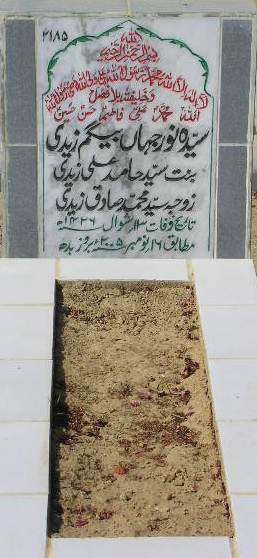 ۲۱۸۵
یا اللہ
بسم اللہ الرحمن الرحیم
لا الہ الا اللہ محمد رسول اللہ علی ولی اللہ وصی رسول اللہ
و خلیفتہ بلا فصل
اللہ محمد علی فاطمہ حسن حسین
سیدہ نور جہاں بیگم زیدی
بنت سید حامد علی زیدی
زوجہ سید محمد صادق زیدی
تاریخ وفات ۱۳ شوال ۱۴۲۶ھ
مطابق ۱۶ نومبر ۲۰۰۵ء بروز بدھ